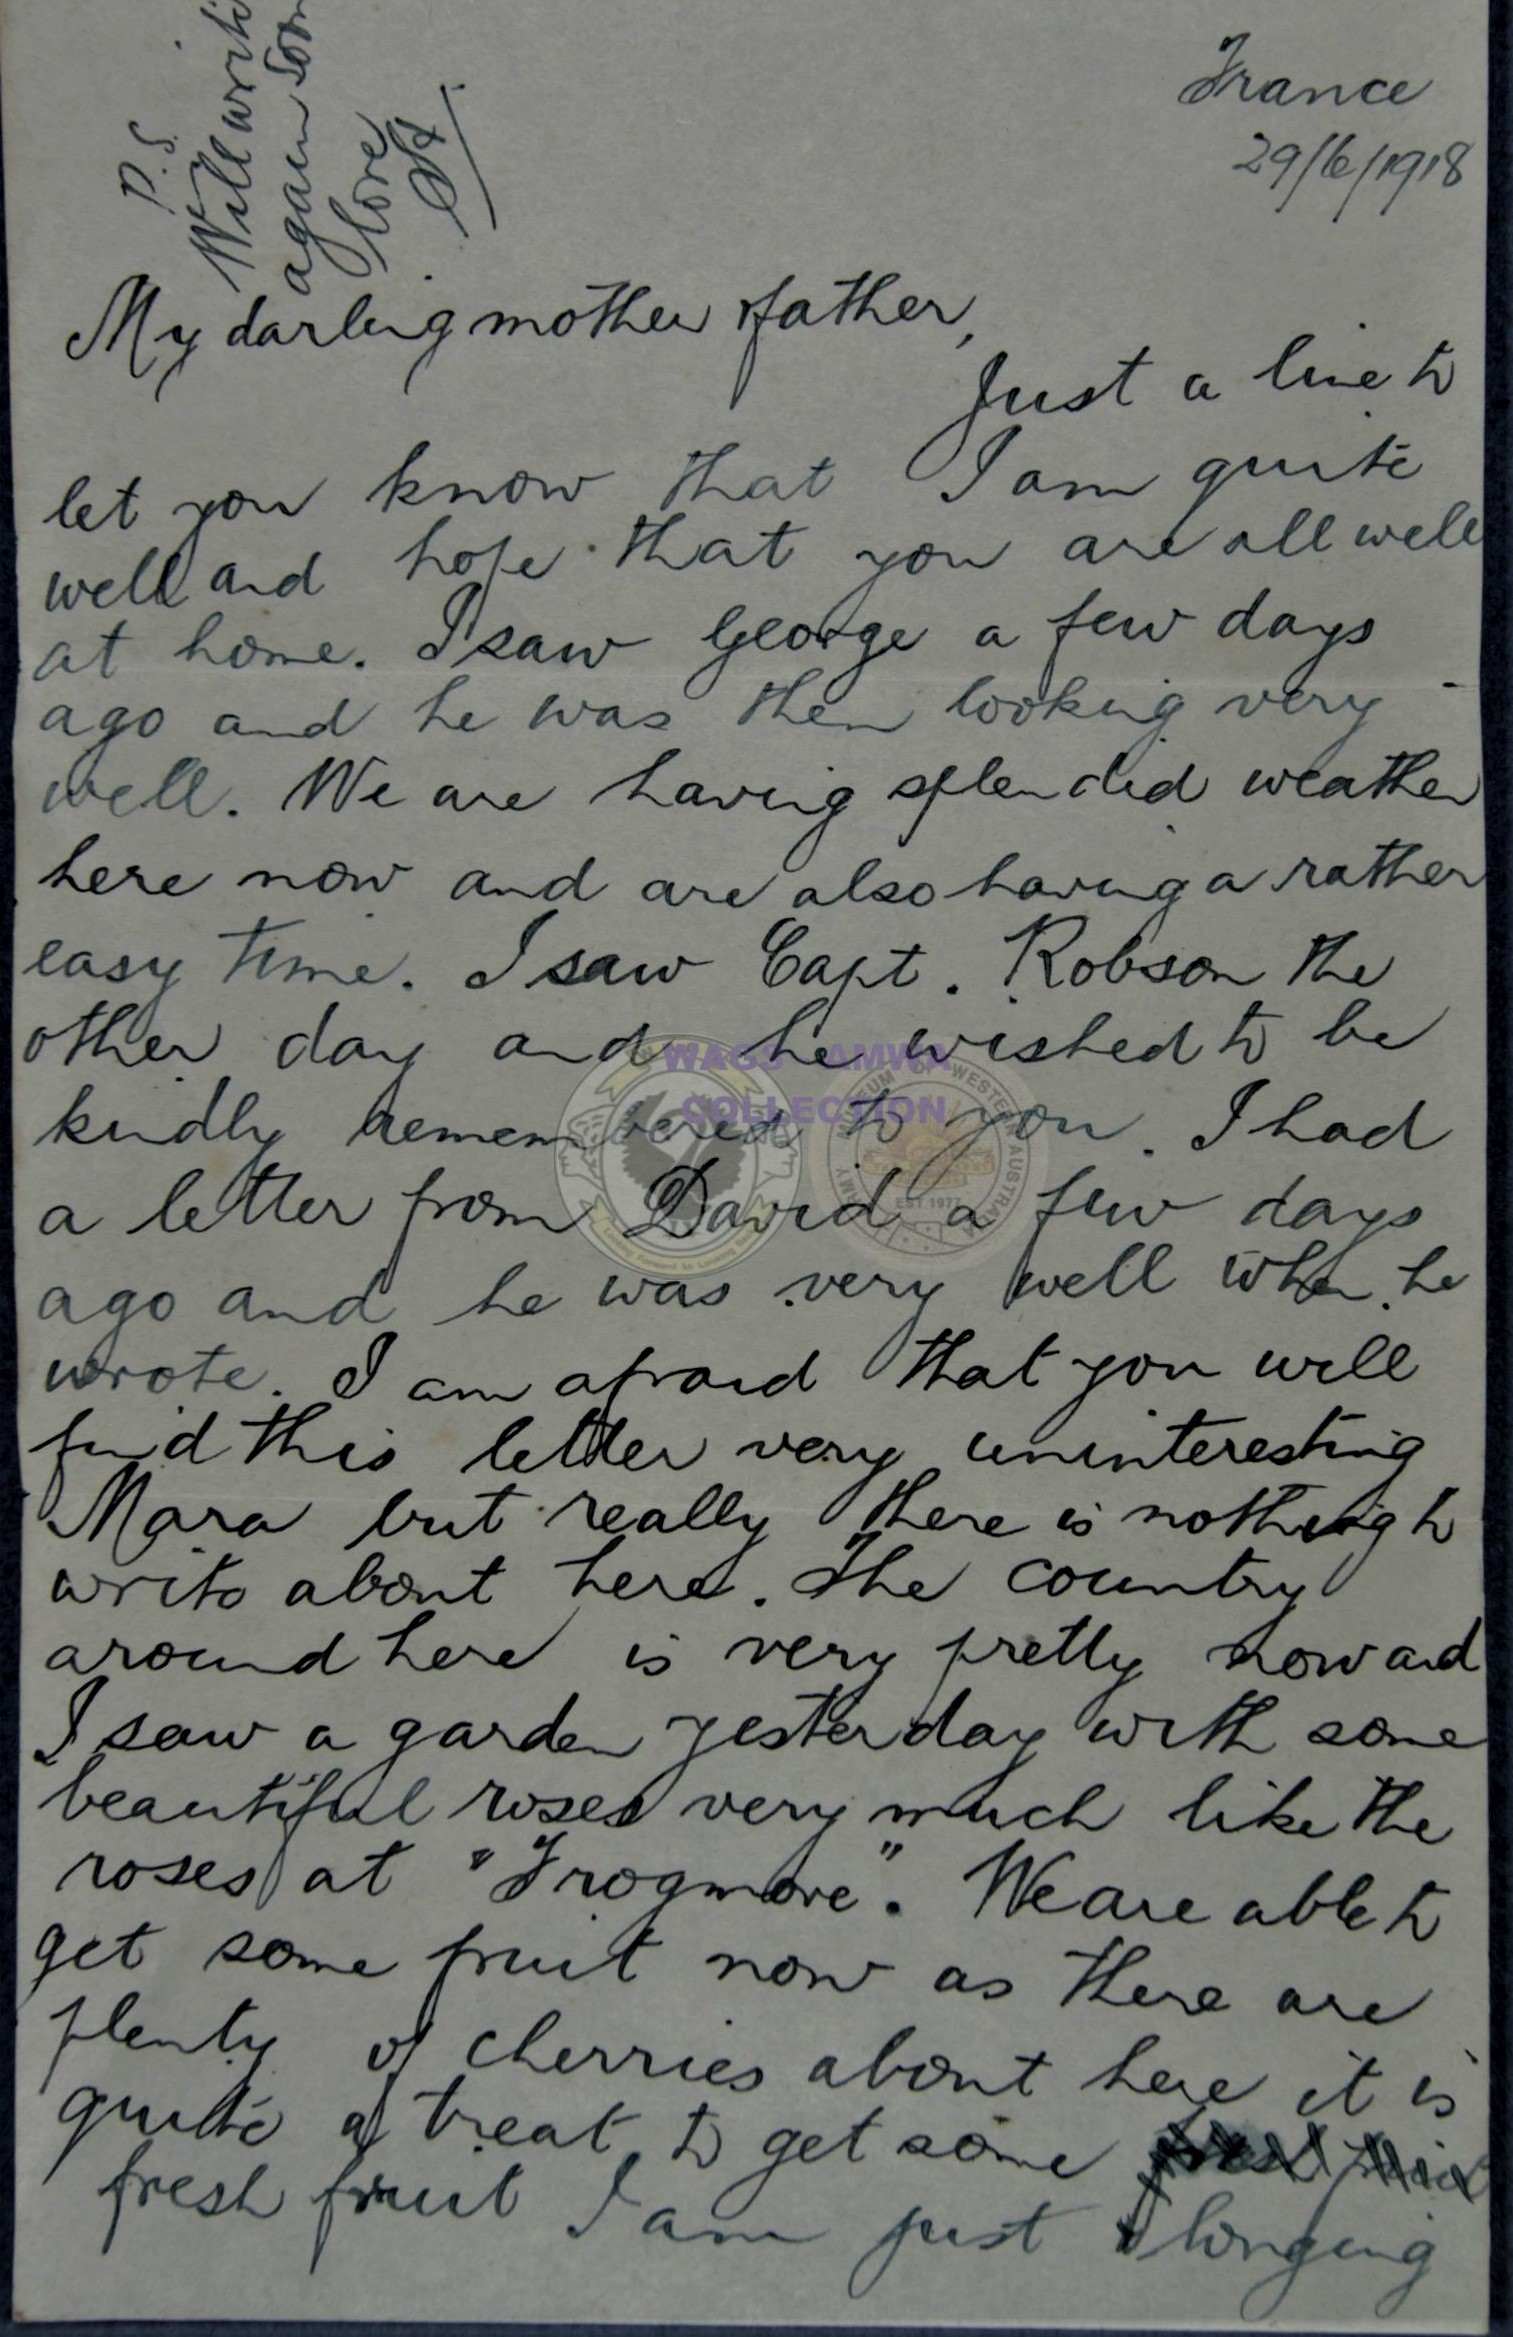 P.S.
Will write
again soon
love
France
29/6/1918
My darling mother & father,
Just a line to
let you know that I am quite
well and hope that you are all well
at home. I saw George a few days
ago and he was then looking very
well. We are having splendid weather
here now and are also having a rather
easy time. I saw Capt. Robson the
other day and he wished to be
kindly remembered to you. I had
a letter from David a few days
ago and he was very well when he
wrote. I am afraid that you will
find this letter very uninteresting
Mara but really there is nothing to
write about here. The country
around here is very pretty now and
I saw a garden yesterday with some
beautiful roses very much like the
roses at "Frogmore". We are able to
get some fruit now as there are
plenty of cherries about here it is
quite a treat to get some
fresh fruit I am just longing
WAGS AMWA
COLLECTION
MUSEUM OF WESTERN AUSTRALIA
ARMY
EST 1977